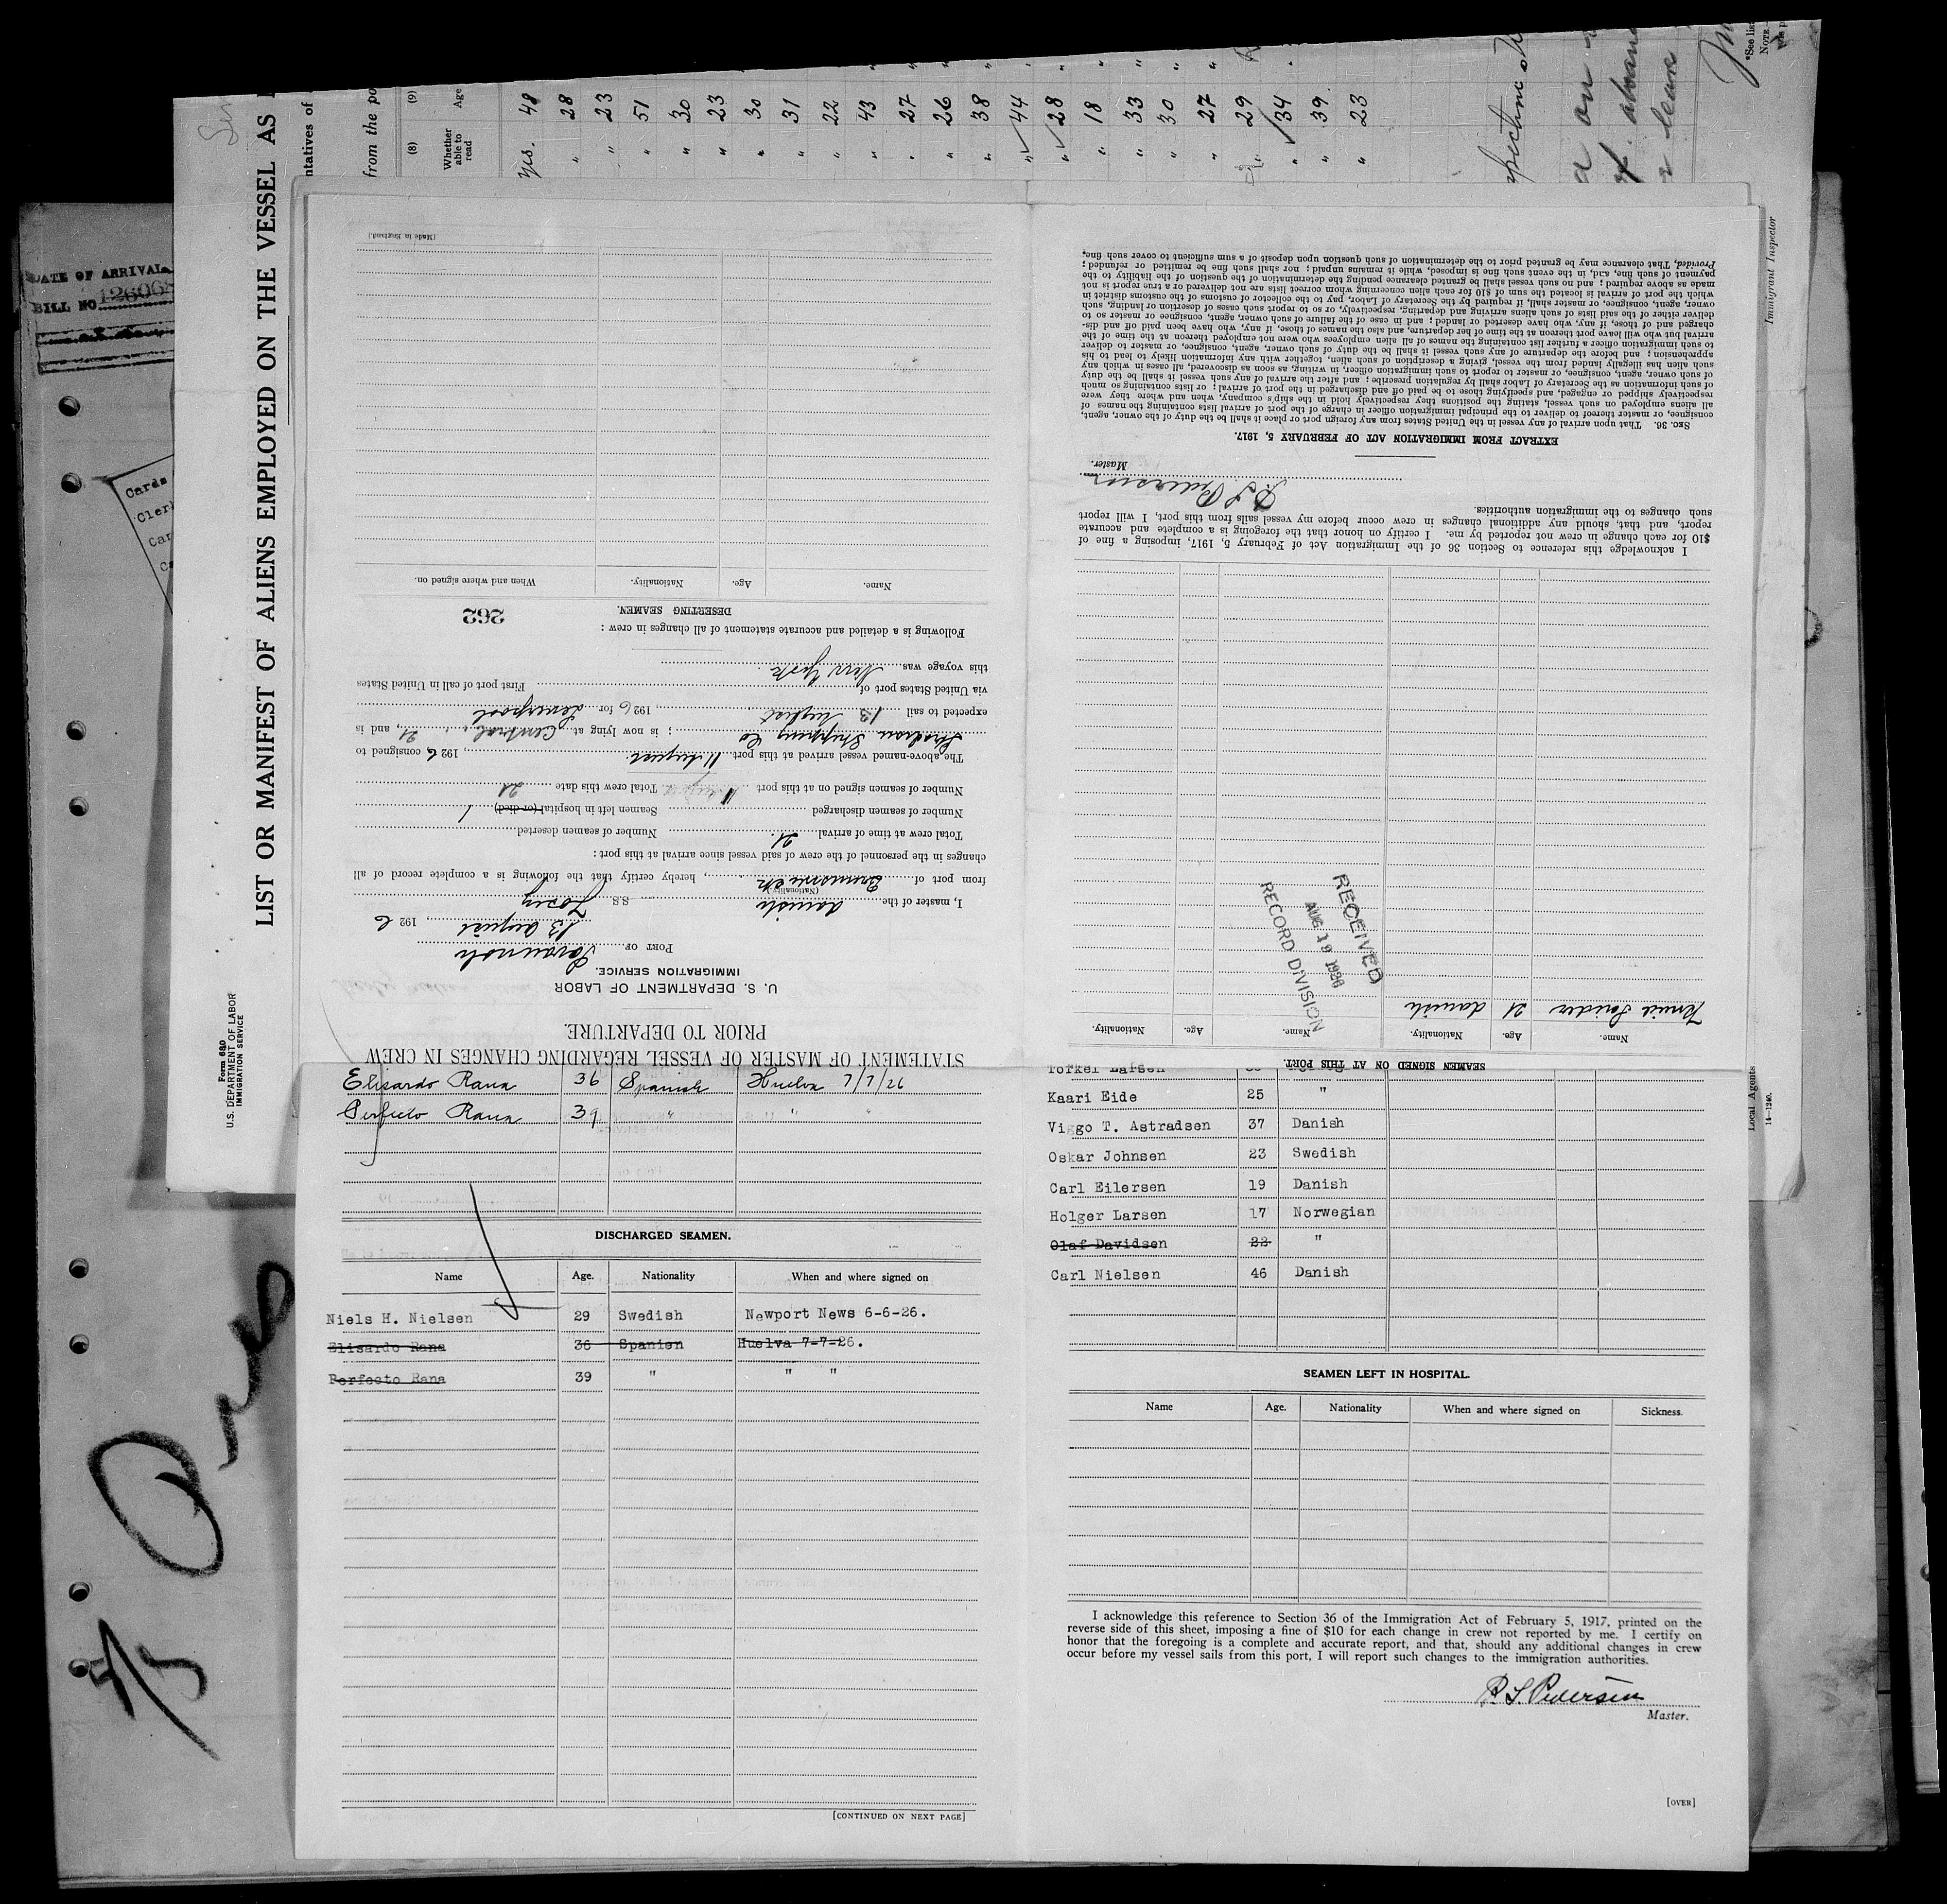 DATE OF ARRIVAL
BILL NO 126068
Cards
Form 680
U.S. DEPARTMENT OF LABOR
IMMIGRATION SERVICE
LIST OR MANIFEST OF ALIENS EMPLOYED ON THE VESSEL AS
from the po
(8) (9)
Whether able to read
Age
yes. 48
" 28
" 23
" 51
" 30
" 23
" 30
" 31
" 22
" 43
" 27
" 26
" 38
" 44
" 28
" 18
" 33
" 30
" 27
" 29
" 34
" 39
" 23
Immigrant Inspector
Local Agents
14—1240.
STATEMENT OF MASTER OF VESSEL REGARDING CHANGES IN CREW
PRIOR TO DEPARTURE.
U. S. DEPARTMENT OF LABOR
IMMIGRATION SERVICE.
PORT OF Savannah
13 august, 192 6
I, master of the danish S.S.
(Nationality)
from port of Brunswick, hereby certify that the following is a complete record of all
changes in the personnel of the crew of said vessel since arrival at this port:
Total crew at time of arrival 21 Number of seamen deserted
Number of seamen discharged Seamen left in hospital (or died) 1
Number of seamen signed on at this port Total crew this date 21
The above-named vessel arrived at this port 11 august, 192 6 consigned to
Strachan Shipping Co; is now lying at Central, 21, and is
expected to sail 13 August, 192 6 for Liverpool
via United States port of First port of call in United States
this voyage was New York
Following is a detailed and accurate statement of all changes in crew:
262
DESERTING SEAMEN.
Name. Age. Nationality. When and where signed on.
(Made in England.)
SEAMEN SIGNED ON AT THIS PORT.
Name. Age. Nationality. Name. Age. Nationality.
21 danish
RECEIVED
AUG 19 1926
RECORD DIVISION
I acknowledge this reference to Section 36 of the Immigration Act of February 5, 1917, imposing a fine of
$10 for each change in crew not reported by me. I certify on honor that the foregoing is a complete and accurate
report, and that, should any additional changes in crew occur before my vessel sails from this port, I will report
such changes to the immigration authorities.
P. S. Pedersen
Master.
EXTRACT FROM IMMIGRATION ACT OF FEBRUARY 5, 1917.
SEC. 36. That upon arrival of any vessel in the United States from any foreign port or place it shall be the duty of the owner, agent,
consignee, or master thereof to deliver to the principal immigration officer in charge of the port of arrival lists containing the names of
all aliens employed on such vessel, stating the positions they respectively hold in the ship's company, when and where they were
respectively shipped or engaged, and specifying those to be paid off and discharged in the port of arrival; or lists containing so much
of such information as the Secretary of Labor shall by regulation prescribe; and after the arrival of any such vessel it shall be the duty
of such owner, agent, consignee, or master to report to such immigration officer, in writing, as soon as discovered, all cases in which any
such alien has illegally landed from the vessel, giving a description of such alien, together with any information likely to lead to his
apprehension; and before the departure of any such vessel it shall be the duty of such owner, agent, consignee, or master to deliver
to such immigration officer a further list containing the names of all alien employees who were not employed thereon at the time of the
arrival but who will leave port thereon at the time of her departure, and also the names of those, if any, who have been paid off and dis-
charged and of those, if any, who have deserted or landed; and in case of the failure of such owner, agent, consignee or master so to
deliver either of the said lists of such aliens arriving and departing, respectively, or so to report such cases of desertion or landing, such
owner, agent, consignee, or master shall, if required by the Secretary of Labor, pay to the collector of customs of the customs district in
which the port of arrival is located the sum of $10 for each alien concerning whom correct lists are not delivered or a true report is not
made as above required; and no such vessel shall be granted clearance pending the determination of the question of the liability to the
payment of such fine, and, in the event such fine is imposed, while it remains unpaid; nor shall such fine be remitted or refunded;
Provided, That clearance may be granted prior to the determination of such question upon deposit of a sum sufficient to cover such fine.
Elisardo Rana 36 Spanish Huelva 7/7/26
Perfecto Rana 39 " " "
DISCHARGED SEAMEN.
Name Age. Nationality When and where signed on
Niels H. Nielsen 29 Swedish Newport News 6-6-26.
Elisardo Rana 36 Spanien Huelva 7-7-26.
Perfecto Rana 39 " " "
[CONTINUED ON NEXT PAGE]
Torkel Larsen
Kaari Eide 25 "
Viggo T. Astradsen 37 Danish
Oskar Johnsen 23 Swedish
Carl Eilersen 19 Danish
Holger Larsen 17 Norwegian
Olaf Davidsen 22 "
Carl Nielsen 46 Danish
SEAMEN LEFT IN HOSPITAL.
Name Age. Nationality When and where signed on Sickness.
I acknowledge this reference to Section 36 of the Immigration Act of February 5, 1917, printed on the
reverse side of this sheet, imposing a fine of $10 for each change in crew not reported by me. I certify on
honor that the foregoing is a complete and accurate report, and that, should any additional changes in crew
occur before my vessel sails from this port, I will report such changes to the immigration authorities.
P. S. Pedersen
Master.
[OVER]